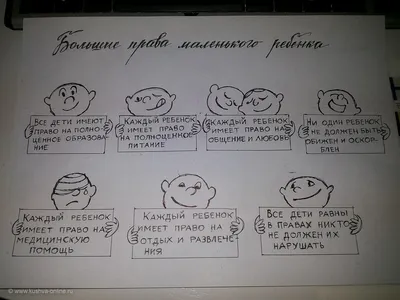 Большие права маленького ребенка
ВСЕ ДЕТИ ИМЕЮТ
ПРАВО НА ПОЛНО-
ЦЕННОЕ ОБРАЗОВА-
НИЕ
КАЖДЫЙ РЕБЕНОК
ИМЕЕТ ПРАВО
НА ПОЛНОЦЕННОЕ
ПИТАНИЕ
КАЖДЫЙ РЕБЕНОК
ИМЕЕТ ПРАВО НА
ОБЩЕНИЕ И ЛЮБОВЬ
НИ ОДИН РЕБЕНОК
НЕ ДОЛЖЕН БЫТЬ
ОБИЖЕН И ОСКОР-
БЛЕН
КАЖДЫЙ РЕБЕНОК
ИМЕЕТ ПРАВО НА
МЕДИЦИНСКУЮ
ПОМОЩЬ
КАЖДЫЙ РЕБЕНОК
ИМЕЕТ ПРАВО НА
ОТДЫХ И РАЗВЛЕЧЕ-
НИЯ
ВСЕ ДЕТИ РАВНЫ
В ПРАВАХ НИКТО
НЕ ДОЛЖЕН ИХ
НАРУШАТЬ